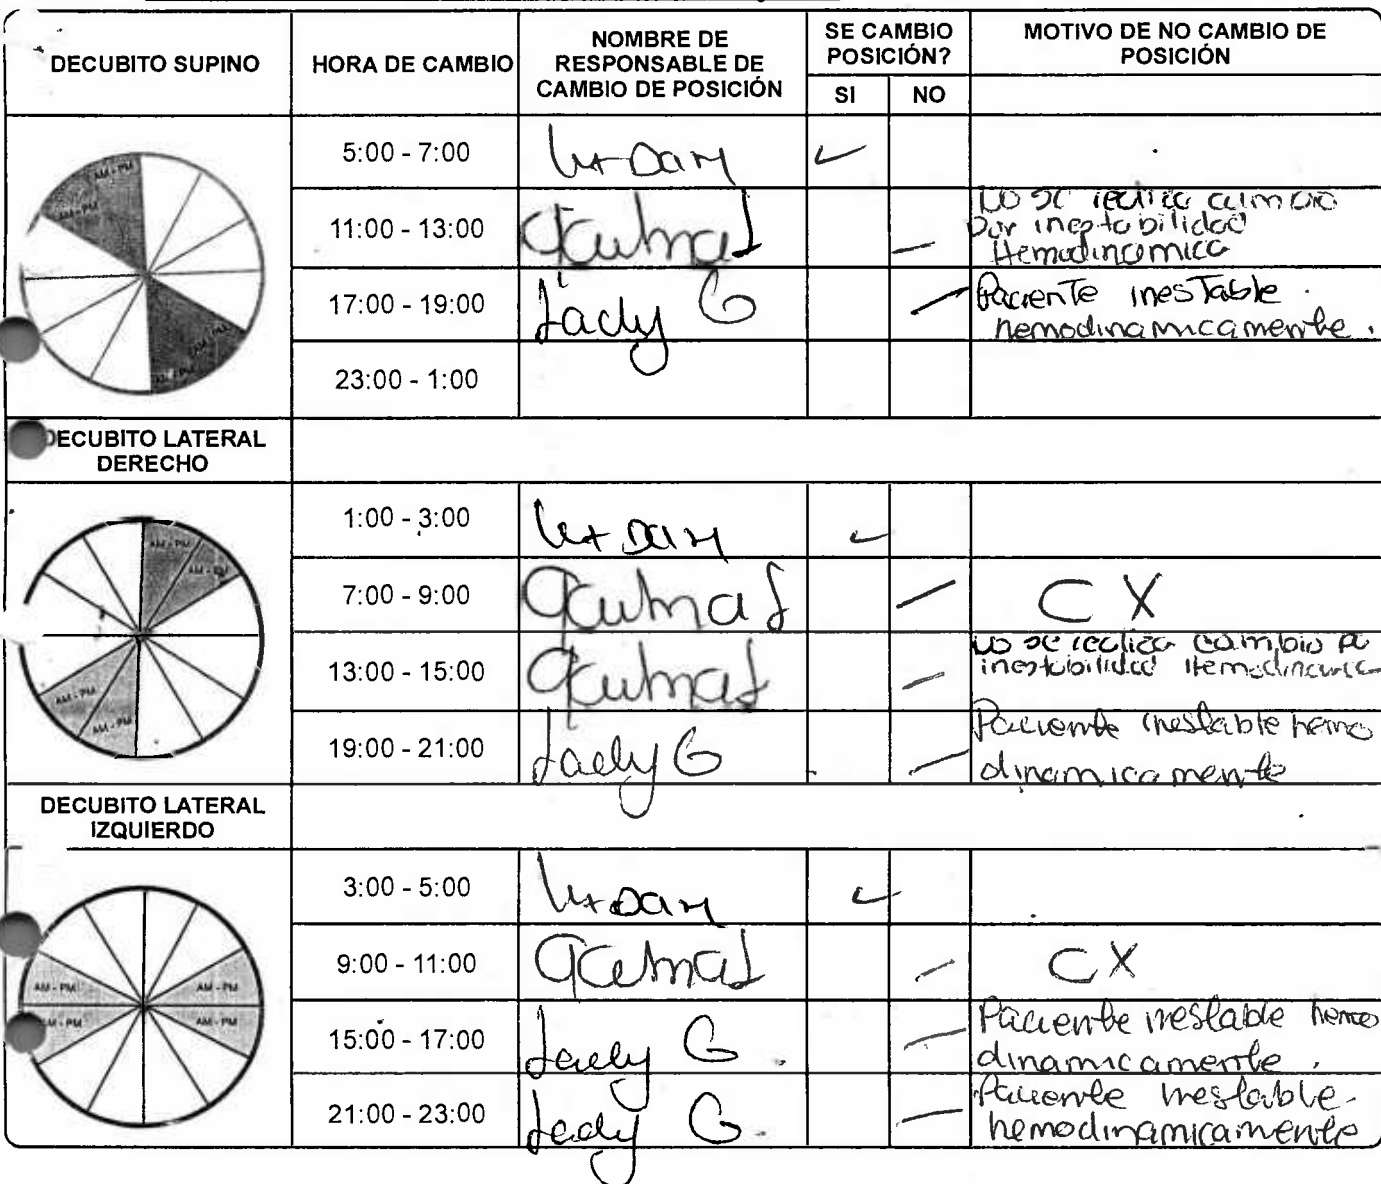 DECUBITO SUPINO
HORA DE CAMBIO
NOMBRE DE
RESPONSABLE DE
CAMBIO DE POSICIÓN
SE CAMBIO
POSICIÓN?
SI
NO
MOTIVO DE NO CAMBIO DE
POSICIÓN
AM - PM
AM - PM
AM - PM
AM - PM
5:00 - 7:00
11:00 - 13:00
No se realiza cambio
por inestabilidad
Hemodinamica
17:00 - 19:00
Lady G
Paciente inestable
hemodinamicamente.
23:00 - 1:00
DECUBITO LATERAL
DERECHO
AM - PM
AM - PM
AM - PM
AM - PM
1:00 - 3:00
7:00 - 9:00
CX
13:00 - 15:00
No se realiza cambio
inestabilidad Hemodinamica
19:00 - 21:00
Lady G
Paciente inestable hemo
dinamicamente
DECUBITO LATERAL
IZQUIERDO
AM - PM
AM - PM
AM - PM
AM - PM
3:00 - 5:00
9:00 - 11:00
CX
15:00 - 17:00
Lady G.
Paciente inestable hemo
dinamicamente.
21:00 - 23:00
Lady G.
Paciente inestable
hemodinamicamente